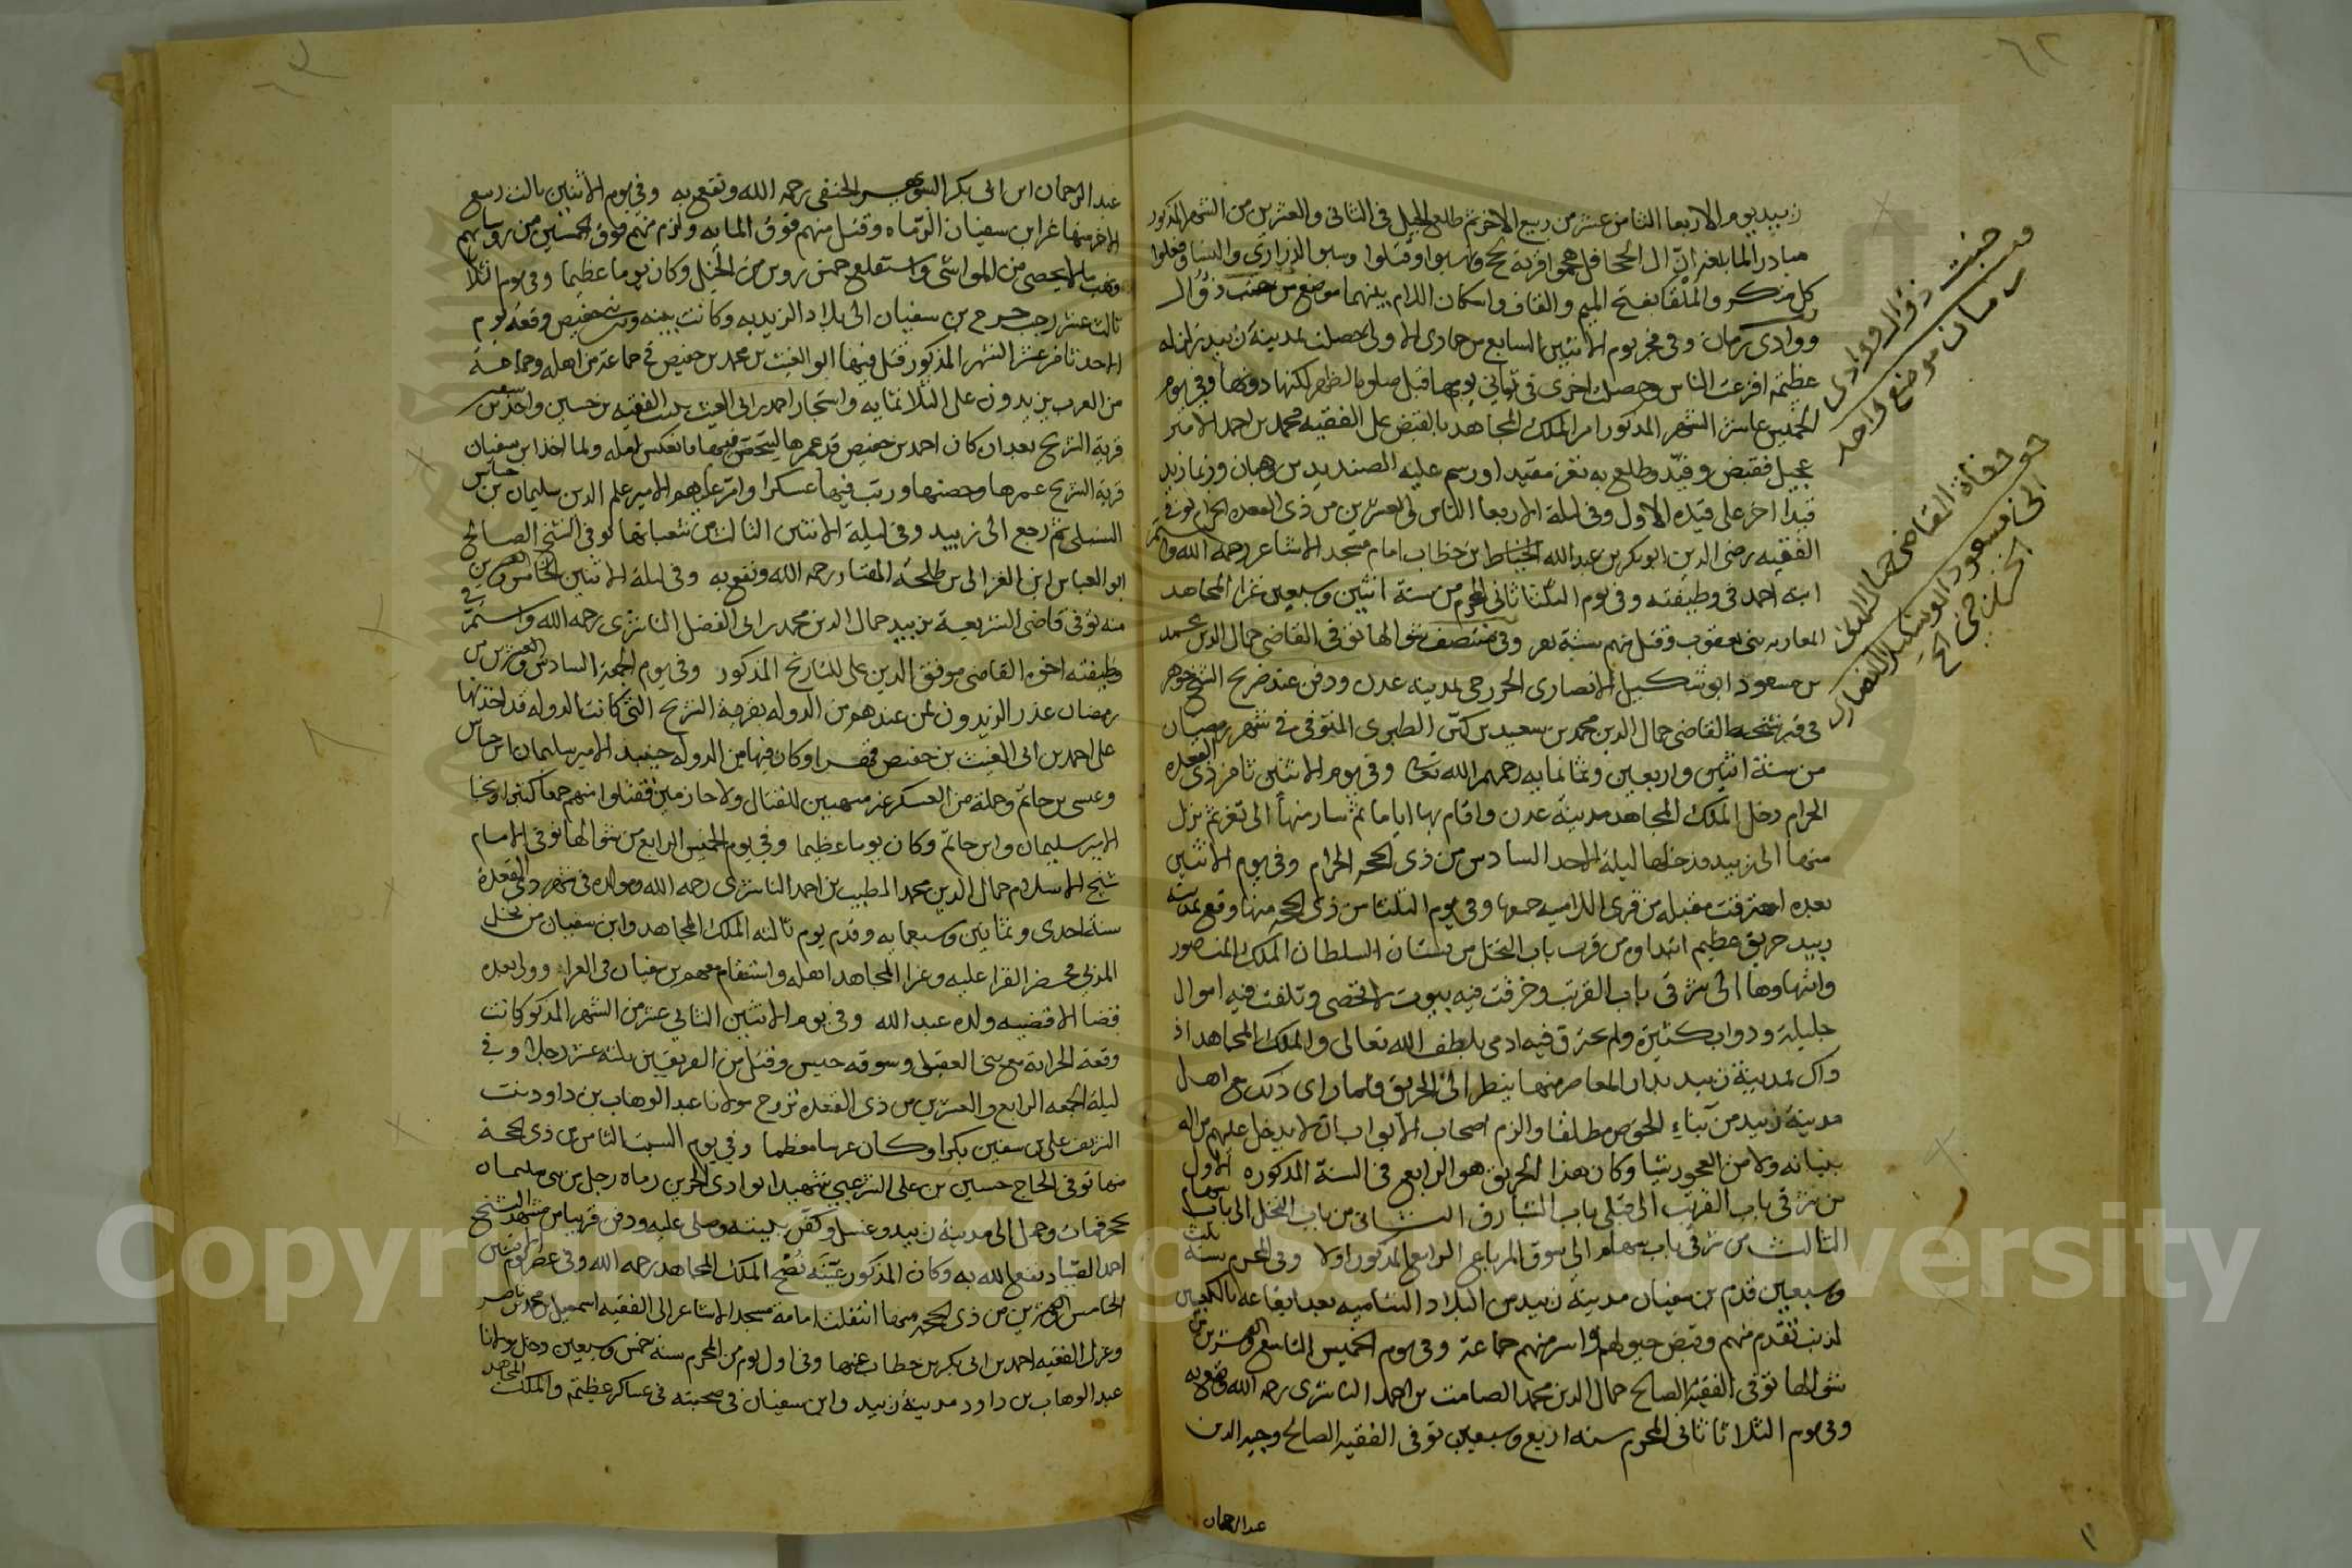 ٦٢
زبيد يوم الاربعا الثامن عشر من ربيع الاخر ثم طلع الجبل في الثاني والعشرين من الشهر المذكور
مبادرا لما بلغه ان ال الححافل هجموا قرية لحج ونهبوا وقتلوا وسبوا الذراري والنسا وفعلوا
كل منكر والملقا بفتح الميم والقاف واسكان اللام بينهما موضع من خنب ذؤال
ووادي رمان وفي فجر يوم الاثنين السابع من جمادى الاولى حصلت بمدينة زبيد زلزله
عظيمة افزعت الناس وحصلت اخرى في ثاني يومها قبل صلوة الظهر لكنها دونها وفي يوم
الخميس عاشر الشهر المذكور امر الملك المجاهد بالقبض على الفقيه محمد بن احمد الامير
عجيل فقبض وقيد وطلع به تعز مقيدا ورسم عليه الصنديد بن وهبان
قيدا اخر على قيده الاول وفي ليلة الاربعا الثاني والعشرين من ذي القعدة الحرام توفي
الفقيه رضي الدين ابوبكر بن عبدالله الخياط ابن خطاب امام مسجد الاشاعر رحمه الله واستمر
ابنه احمد في وظيفته وفي يوم الثلثا ثاني المحرم من سنة اثنين وسبعين غزا المجاهد
المعازبه بني يعقوب وقتل منهم ستة نفر وفي منتصف شوالها توفي القاضي جمال الدين محمد
بن مسعود ابو شكيل الانصاري الخزرجي بمدينة عدن ودفن عند ضريح الشيخ جوهر
في قبر شيخه القاضي جمال الدين محمد بن سعيد بن كبّن الطبري المتوفى في شهر رمضان
من سنة اثنين واربعين وثمانمايه رحمهم الله تعالى وفي يوم الاثنين ثامن ذي القعدة
الحرام دخل الملك المجاهد مدينة عدن واقام بها اياما ثم سار منها الى تعز ثم نزل
منها الى زبيد فدخلها ليلة الاحد السادس من ذي الحجة الحرام وفي يوم الاثنين
بعده احترقت مقبله من قرى اللاميه جميعها وفي يوم الثلثا من ذي الحجه منها وقع بمدينة
زبيد حريق عظيم ابتداوه من قرب باب النخل من بستان السلطان الملك المنصور
وانتهاوها الى شرقي باب القرتب وحرقت فيه بيوت لا تحصى وتلفت فيه اموال
جليلة ودواب كثيرة ولم يحترق فيه ادمي بلطف الله تعالى والملك المجاهد اذ
ذاك بمدينة زبيد بدار المعاصر منها ينظر الى الحريق فلما راى ذلك منع اهل
مدينة زبيد من بناء الخوص مطلقا والزم اصحاب الابواب ان لا يدخل عليهم من اله
بنيانه ولا من العجور شيا وكان هذا الحريق هو الرابع في السنة المذكوره الاول
من شرقي باب القرتب الى قبلي باب الشبارق الثاني من باب النخل الى باب سهام
الثالث من شرقي باب سهام الى سوق المرباع الرابع المذكور اولا وفي المحرم سنة ثلث
وسبعين قدم بن سفيان مدينة زبيد من البلاد الشاميه بعد ايقاعه بالكعبيين
لذنب تقدم منهم وقبض خيولهم واسر منهم جماعة وفي يوم الخميس التاسع والعشرين من
شوالها توفي الفقيه الصالح جمال الدين محمد الصامت بن احمد الناشري رحمه الله ونفع به
وفي يوم الثلاثا ثاني المحرم سنه اربع وسبعين توفي الفقيه الصالح وجيه الدين
عبدالرحمان
خبت ذؤال ووادي
رمان موضع واحد
وفاة القاضي جمال الدين
ابن مسعود ابو شكيل الانصاري
الخزرجي
عبد الرحمان ابن ابي بكر الحنفي رحمه الله ونفع به وفي يوم الاثنين ثالث ربيع
الاخر منها غزا ابن سفيان الرماه وقتل منهم فوق المايه ولزم منهم فوق الخمسين من روسايهم
ونهب ما لا يحصى من المواشي واستقلع خمس روس من الخيل وكان يوما عظيما وفي يوم ثلاثا
ثالث عشر رجب خرج بن سفيان الى بلاد الزيديه وكانت بينه وبين حفيص وقعة يوم
الاحد ثامن عشر الشهر المذكور قتل فيها ابو الغيث بن محمد بن حفيص في جماعة من اهله وجماعة
من العرب يزيدون على الثلاثمايه واستجار احمد بن ابي الغيث ببيت الفقيه بن حشيبر واخذ بن سفين
قرية الشريج بعد ان كان احمد بن حفيص قد عمرها ليتحصن فيها فانعكس امله ولما اخذ ابن سفيان
قرية الشريج عمرها وحصنها ورتب فيها عسكرا وامر عليهم الامير علم الدين سليمان بن جياش
السنبلي ثم رجع الى زبيد وفي ليلة الاثنين الثالث من شعبانها توفي الشيخ الصالح
ابو العباس ابن الغزالي بن طلحة الهتار رحمه الله ونفع به وفي ليلة الاثنين الخامس والعشرين
منه توفي قاضي الشريعة بزبيد جمال الدين محمد بن ابي الفضل الناشري رحمه الله واستمر في
وظيفته اخوه القاضي موفق الدين علي للتاريخ المذكور وفي يوم الجمعة السادس والعشرين من
رمضان غدر الزيديون بمن عندهم من الدوله بقرية الشريج التي كانت الدوله قد اخذتها
على احمد بن ابي الغيث بن حفيص قهرا وكان فيها من الدولة حينئذ الامير سليمان ابن جياش
وعيسى بن حاتم وجملة من العسكر غير متهيين للقتال ولا حازمين فقتلوا منهم جمعا كثيرا ونجا
الامير سليمان وابن حاتم وكان يوما عظيما وفي يوم الخميس الرابع من شوالها توفي الامام
شيخ الاسلام جمال الدين محمد الطيب بن احمد الناشري رحمه الله ومولده في شهر ذي القعدة
سنة احدى وثمانين وسبعمايه وقدم يوم ثالثه الملك المجاهد وابن سفيان من نخل
المدبي فحضر القرا عليه وعزا المجاهد اهله واستقام معهم بن سفيان في العزاء وولي بعده
قضا الاقضيه ولده عبدالله وفي يوم الاثنين الثاني عشر من الشهر المذكور كانت
وقعة الحرابة مع بني العقيلي وسوقه حيس وقتل من الفريقين ثلثة عشر رجلا وفي
ليلة الجمعه الرابع والعشرين من ذي القعدة تزوج مولانا عبد الوهاب بن داود بنت
الشريف علي بن سفين بكرا وكان عرسا معظما وفي يوم السبت الثامن من ذي الحجة
منها توفي الحاج حسين بن علي الشرعبي شهيدا بوادي الحزين رماه رجل من بني سليمان
بحجر فمات وحمل الى مدينة زبيد وغسل وكفن ببيته وصلي عليه ودفن قريبا من مشهد الشيخ
احمد الصياد نفع الله به وكان المذكور عيبة نصح الملك المجاهد رحمه الله وفي عصر يوم الاثنين
الخامس والعشرين من ذي الحجة منها انتقلت امامة مسجد الاشاعر الى الفقيه اسمعيل بن محمد بن ناصر
وعزل الفقيه احمد بن ابي بكر بن خطاب عنها وفي اول يوم من المحرم سنة خمس وسبعين دخل مولانا
عبد الوهاب بن داود مدينة زبيد وابن سفيان في صحبته في عساكر عظيمة والملك المجاهد
Copyright © King Saud University